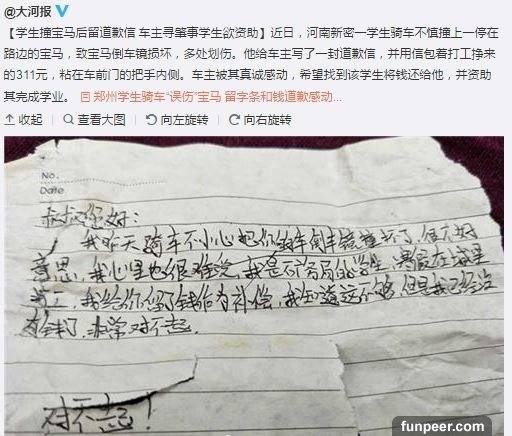 @大河报
【学生撞宝马后留道歉信 车主寻肇事学生欲资助】近日，河南新密一学生骑车不慎撞上一停在
路边的宝马，致宝马倒车镜损坏，多处划伤。他给车主写了一封道歉信，并用信包着打工挣来
的311元，粘在车前门的把手内侧。车主被其真诚感动，希望找到该学生将钱还给他，并资助
其完成学业。 郑州学生骑车“误伤”宝马 留字条和钱道歉感动...
收起 查看大图 向左旋转 向右旋转
No.
Date
叔叔您好：
我昨天骑车不小心把你的车倒车镜撞坏了，很不好
意思，我心里也很难受，我是石务局的学生，暑假在这里
我给你留了钱作为补偿，我知道这不够，但是我已经没
有钱了，非常对不起。
对不起！
funpeer.com